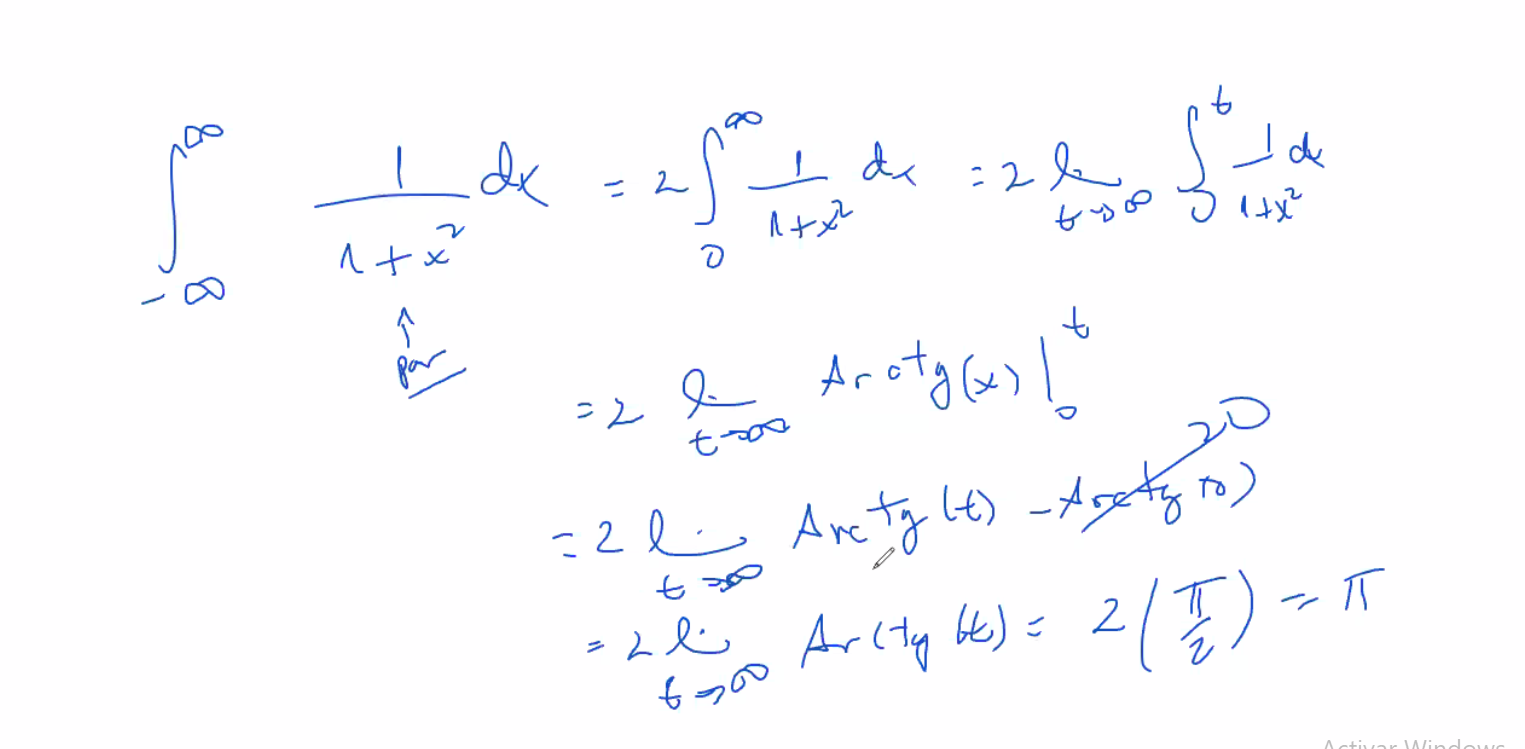 ∫_{-∞}^{∞} 1/(1+x²) dx = 2 ∫_0^∞ 1/(1+x²) dx = 2 lim_{t→∞} ∫_0^t 1/(1+x²) dx
↑
par
= 2 lim_{t→∞} Arctg(x) |_0^t
= 2 lim_{t→∞} Arctg(t) - Arctg(0) → 0
= 2 lim_{t→∞} Arctg(t) = 2(π/2) = π
Activar Windows